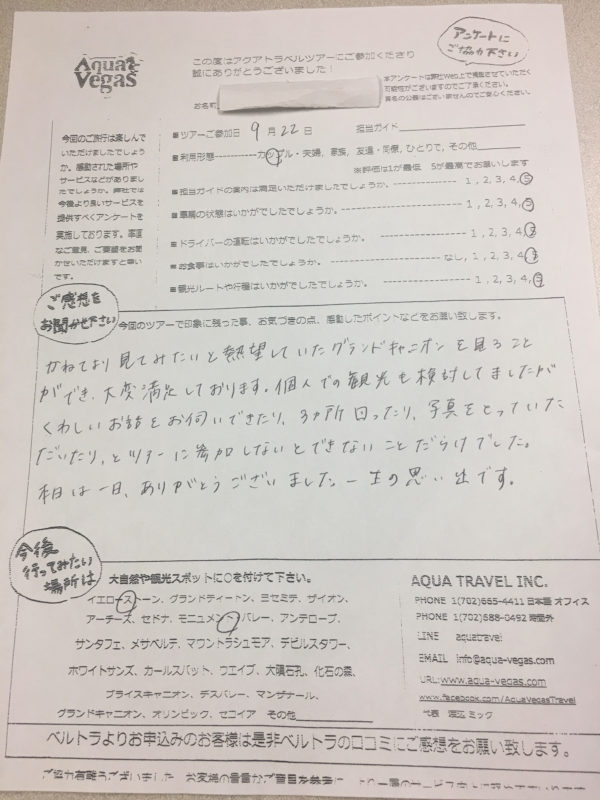 Aqua Vegas
この度はアクアトラベルツアーにご参加くださり
誠にありがとうございました！
アンケートに
ご協力下さい
本アンケートは弊社Web上で掲載させていただく
可能性がございますのでご了承ください。
実名の公表はございませんのでご安心ください。
お名前
今回のご旅行は楽しんで
いただけましたでしょう
か。感動された場所や
サービスなどがありまし
たでしょうか。弊社では
今後より良いサービスを
提供すべくアンケートを
実施しております。率直
なご意見、ご要望をお聞
かせいただけますと幸い
です。
■ツアーご参加日 9月22日 担当ガイド
■利用形態-----------カップル・夫婦, 家族, 友達・同僚, ひとりで, その他
※評価は1が最低 5が最高でお願いします
■担当ガイドの案内は満足いただけましたでしょうか。---------------- 1, 2, 3, 4, 5
■車輌の状態はいかがでしたでしょうか。---------------- 1, 2, 3, 4, 5
■ドライバーの運転はいかがでしたでしょうか。---------------- 1, 2, 3, 4, 5
■お食事はいかがでしたでしょうか。---------------- なし, 1, 2, 3, 4, 5
■観光ルートや行程はいかがでしたでしょうか。---------------- 1, 2, 3, 4, 5
ご感想を
お聞かせ下さい
今回のツアーで印象に残った事、お気づきの点、感動したポイントなどをお願い致します。
かねてより見てみたいと熱望していたグランドキャニオンを見ること
ができ、大変満足しております。個人での観光も検討してましたが
くわしいお話をお伺いできたり、3カ所回ったり、写真をとっていた
だいたり、とツアーに参加しないとできないことだらけでした。
本日は一日、ありがとうございました。一生の思い出です。
今後
行ってみたい
場所は
大自然や観光スポットに○を付けて下さい。
イエローストーン、グランドティートン、ヨセミテ、ザイオン、
アーチーズ、セドナ、モニュメントバレー、アンテロープ、
サンタフェ、メサベルデ、マウントラシュモア、デビルスタワー、
ホワイトサンズ、カールスバット、ウエイブ、大隕石孔、化石の森、
ブライスキャニオン、デスバレー、マンザナール、
グランドキャニオン、オリンピック、セコイア その他
AQUA TRAVEL INC.
PHONE 1(702)665-4411 日本語 オフィス
PHONE 1(702)688-0492 時間外
LINE aquatravel
EMAIL info@aqua-vegas.com
URL:www.aqua-vegas.com
www.facebook.com/AquaVegasTravel
代表 ミック
ベルトラよりお申込みのお客様は是非ベルトラの口コミにご感想をお願い致します。
ご協力有難うございました